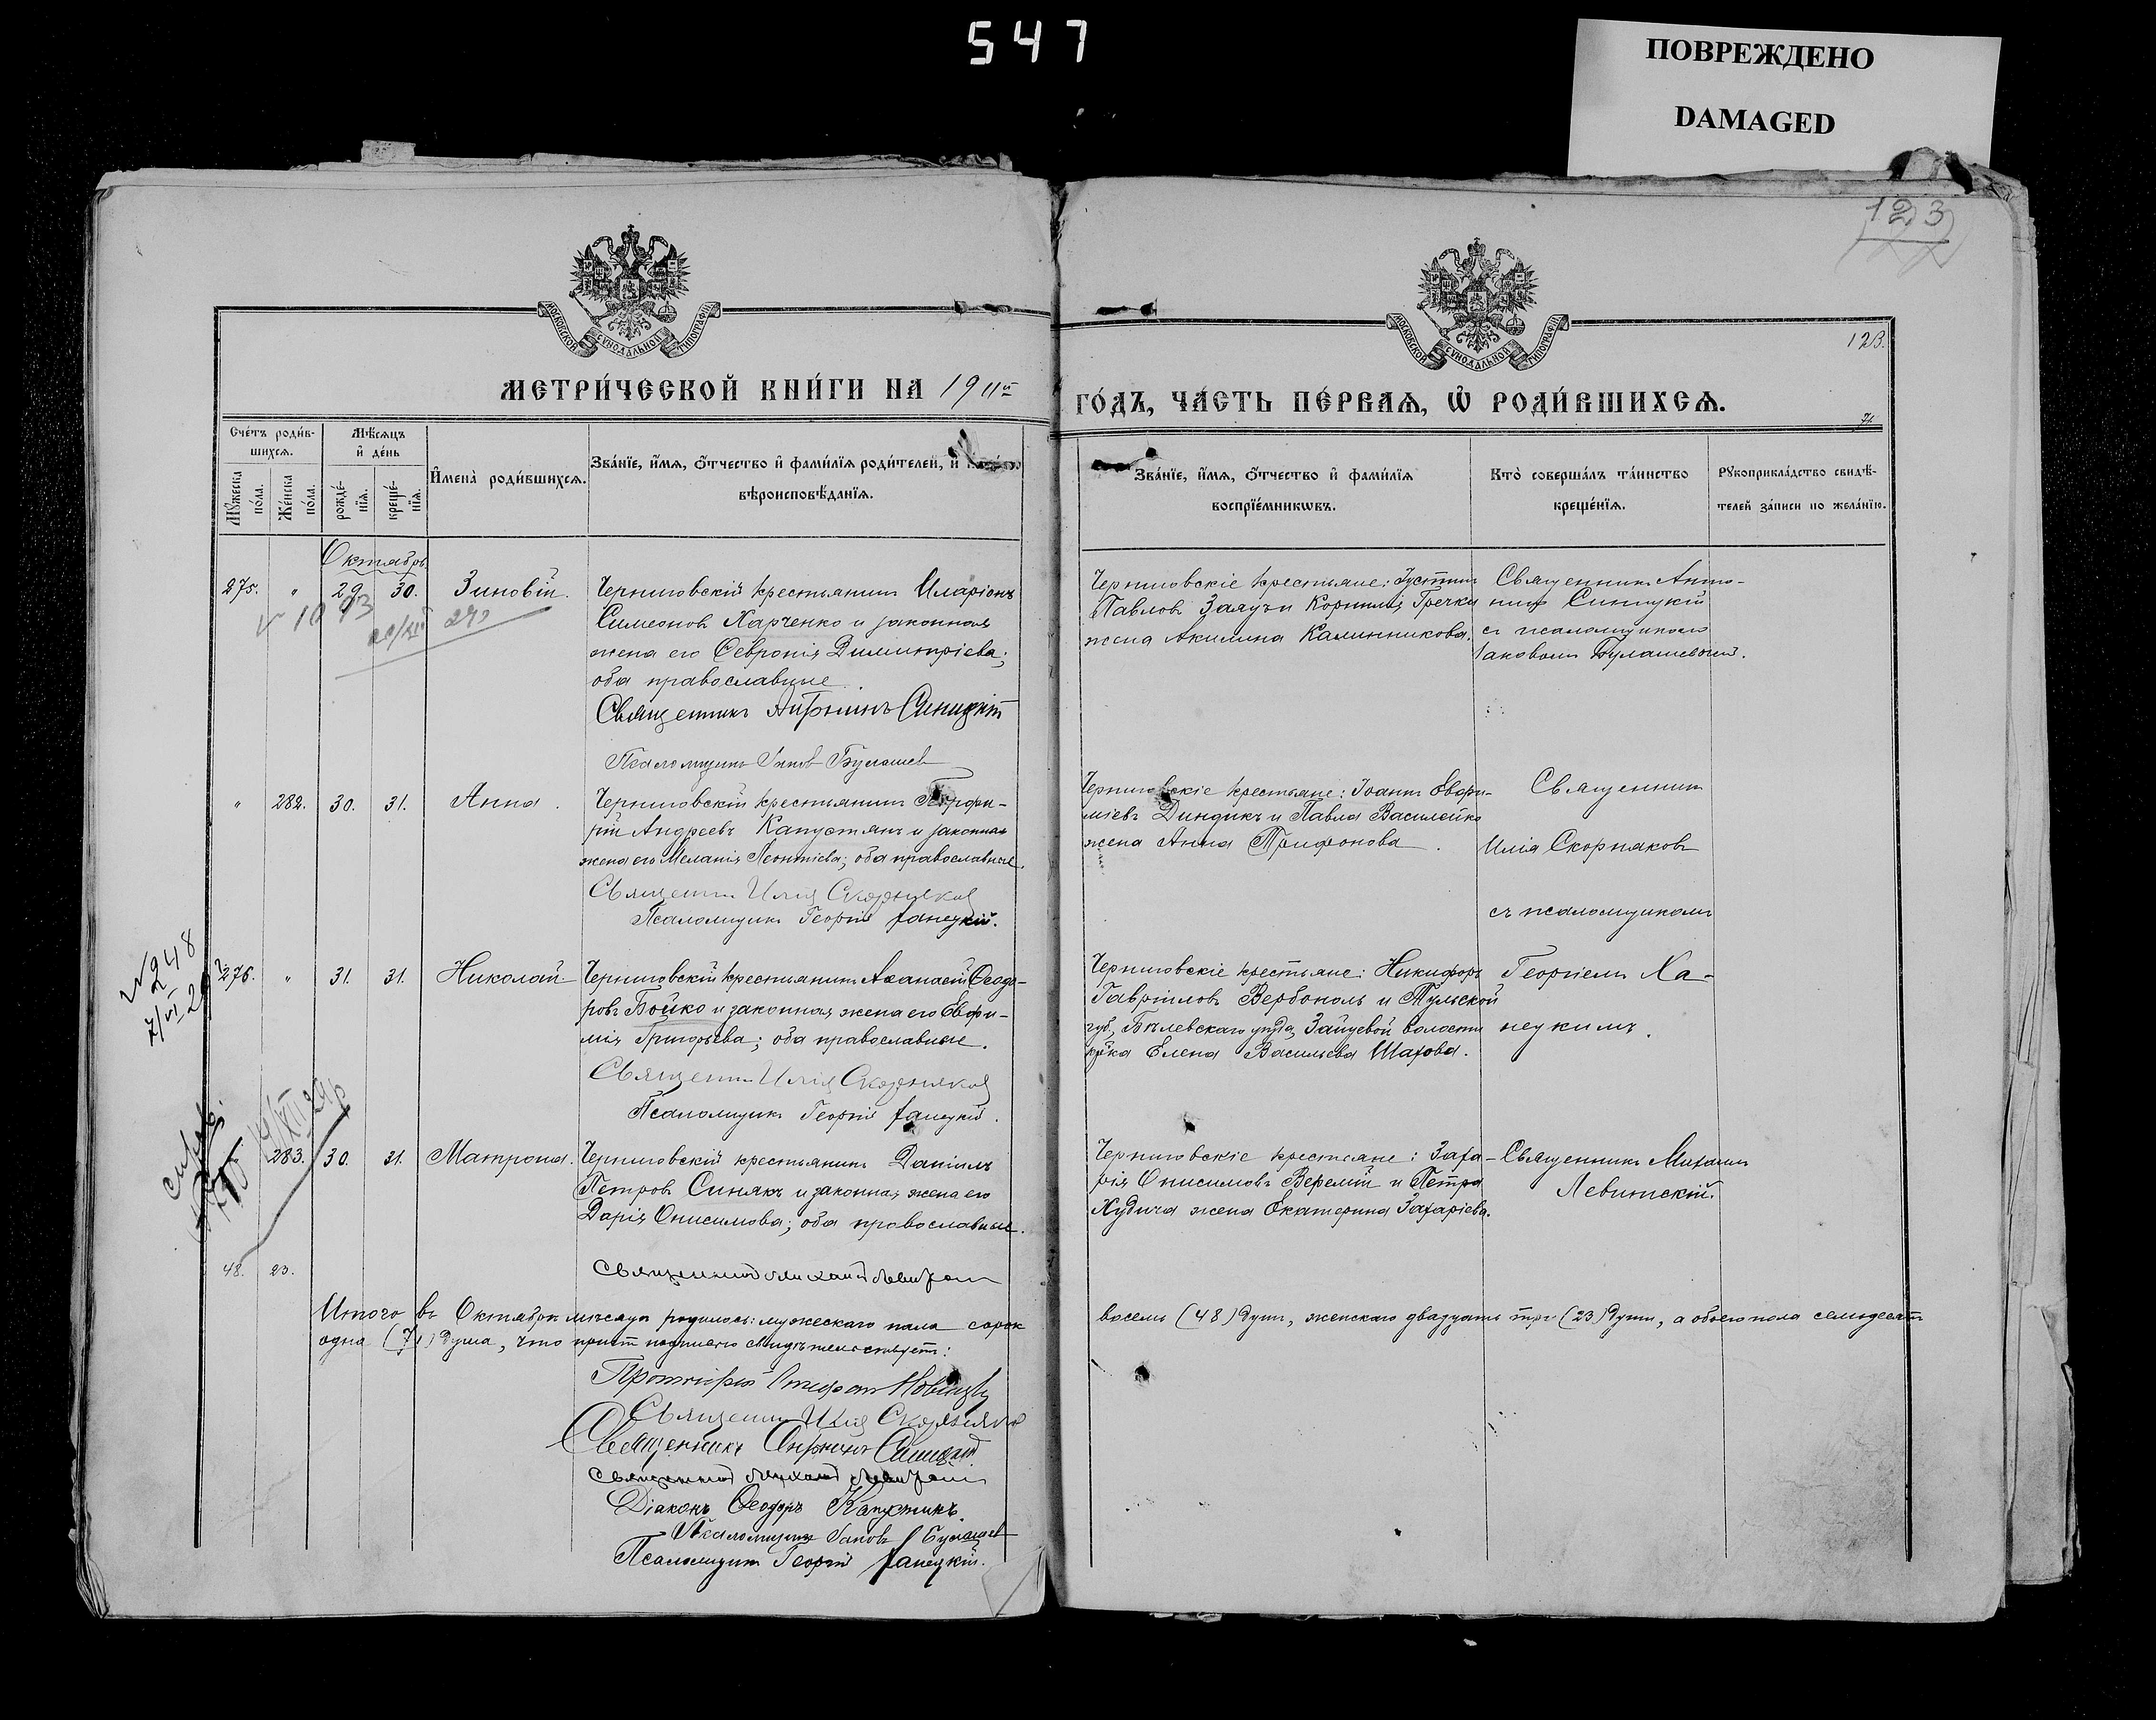 547
ПОВРЕЖДЕНО
DAMAGED
123
МОСКОВСКОЙ СѴНОДАЛЬНОЙ ТИПОГРАФІИ
МОСКОВСКОЙ СѴНОДАЛЬНОЙ ТИПОГРАФІИ
123.
МЕТРИ́ЧЕСКОЙ КНИ́ГИ НА 1911й
ГО́ДЪ, ЧА́СТЬ ПЕ́РВАѦ, Ѡ҆ РОДИ́ВШИХСѦ.
71.
Сче́тъ роди́в-
шихсѧ.
Мѣ́сѧцъ
и҆ де́нь
Мꙋ́жеска
по́ла.
Же́нска
по́ла.
рожде́-
нїѧ.
креще́-
нїѧ.
И҆мена̀ роди́вшихсѧ.
Зва́нїе, и҆́мѧ, ѻ҆́тчество и҆ фами́лїѧ роди́телей, и҆
вѣроисповѣ́данїѧ.
Зва́нїе, и҆́мѧ, ѻ҆́тчество и҆ фами́лїѧ
воспрїе́мникѡвъ.
Кто̀ соверша́лъ та́инство
креще́нїѧ.
Рꙋкоприкла́дство свидѣ́-
телей за́писи по жела́нїю.
Октябрь
275. " 29. 30. Зиновій. Черниговскій крестьянинъ Иларіонъ
Симеоновъ Харченко и законная
жена его Ѳевронія Димитріева;
оба православные.
Священникъ Антонинъ Синицкій
Псаломщикъ Іаковъ Булашев
Черниговскіе крестьяне: Іустинъ
Павловъ Заяцъ и Корнилія Гречки
жена Акилина Калинникова.
Священникъ Анто-
нинъ Синицкій
съ псаломщикомъ
Іаковомъ Булашевымъ.
" 282. 30. 31. Анна. Черниговскій крестьянинъ Порфи-
рій Андреевъ Капустянъ и законная
жена его Меланія Леонтіева; оба православные.
Священникъ Илія Скорняковъ
Псаломщикъ Георгій Ханецкій.
Черниговскіе крестьяне: Іоаннъ Евфи-
міевъ Диндикъ и Павла Василейко
жена Анна Трифонова.
Священникъ
Илія Скорняковъ
съ псаломщикомъ
№248
7/VI 29
276. " 31. 31. Николай. Черниговскій крестьянинъ Аѳанасій Ѳеодо-
ровъ Бойко и законная жена его Евфи-
мія Григорьева; оба православные.
Священникъ Илія Скорняковъ
Псаломщикъ Георгій Ханецкій.
Черниговскіе крестьяне: Никифоръ
Гавріиловъ Вербополь и Тульской
губ., Бѣлевскаго уѣзда, Зайцевой волости
кр-ка Елена Васильева Шахова.
Георгіемъ Ха-
нецкимъ.
283. 30. 31. Матрона. Черниговскій крестьянинъ Даніилъ
Петровъ Синякъ и законная жена его
Дарія Онисимова; оба православные.
Священникъ Михаилъ Левитскій
Черниговскіе крестьяне: Заха-
рія Онисимовъ Веремій и Петра
Худича жена Екатерина Захаріева.
Священникъ Михаилъ
Левитскій.
48. 23.
Итого въ Октябрѣ мѣсяцѣ родилось: мужескаго пола сорок
восемь (48) душъ, женскаго двадцать три (23) души, а обоего пола семьдесятъ
одна (71) душа, что причтъ подписью свидѣтельствуетъ:
Протоіерей Стефанъ
Священникъ Илія Скорняковъ
Священникъ Антонинъ Синицкій
Священникъ Михаилъ Левитскій
Діаконъ Ѳеодоръ Капустинъ.
Псаломщикъ Іаковъ Булашев
Псаломщикъ Георгій Ханецкій.